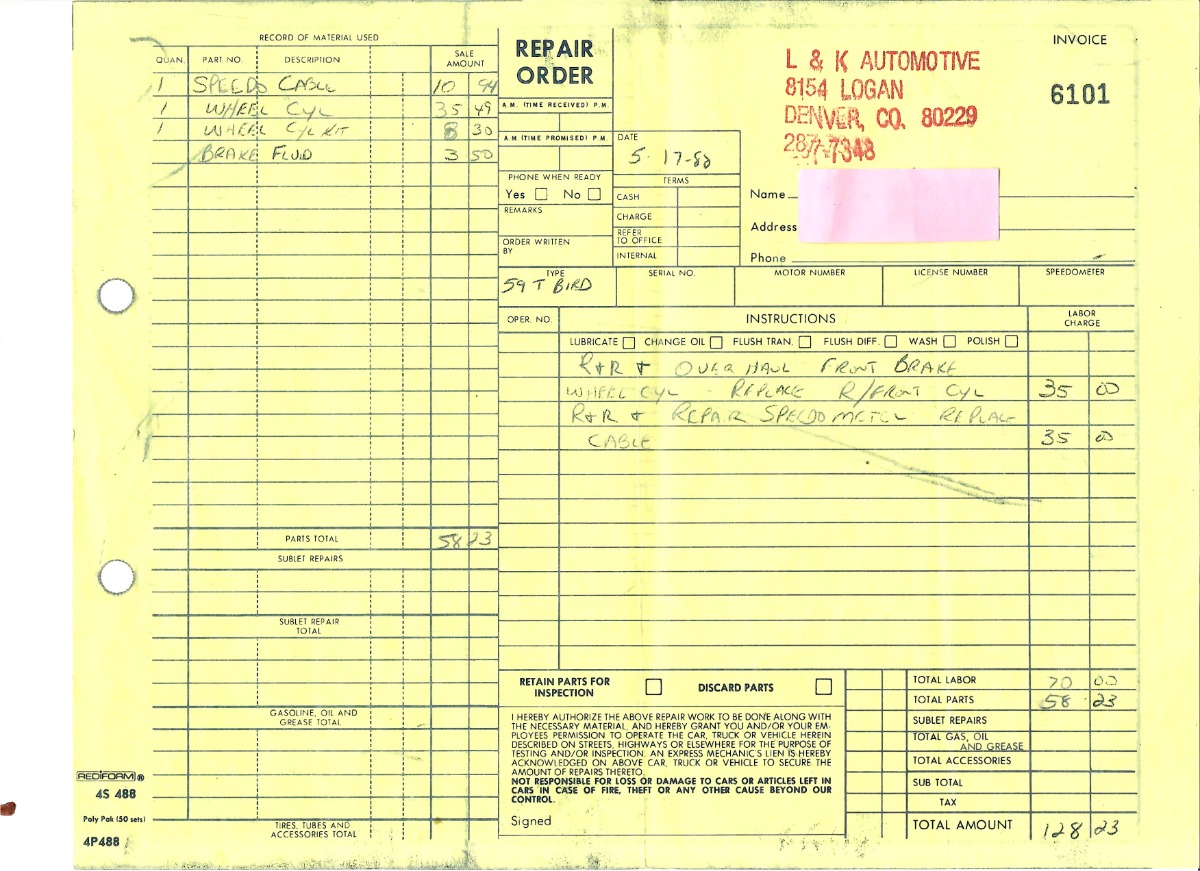 RECORD OF MATERIAL USED
QUAN. PART NO. DESCRIPTION SALE AMOUNT
1 SPEEDO CABLE 10 94
1 WHEEL CYL 35 49
1 WHEEL CYL KIT 8 30
BRAKE FLUID 3 50
PARTS TOTAL 58 23
SUBLET REPAIRS
SUBLET REPAIR TOTAL
GASOLINE, OIL AND GREASE TOTAL
TIRES, TUBES AND ACCESSORIES TOTAL
REDIFORM ®
4S 488
Poly Pak (50 sets)
4P488
REPAIR ORDER
A.M. (TIME RECEIVED) P.M.
A.M. (TIME PROMISED) P.M.
PHONE WHEN READY
Yes No
REMARKS
ORDER WRITTEN BY
DATE
5-17-88
TERMS
CASH
CHARGE
REFER TO OFFICE
INTERNAL
L & K AUTOMOTIVE
8154 LOGAN
DENVER, CO. 80229
287-7348
INVOICE
6101
Name
Address
Phone
TYPE SERIAL NO. MOTOR NUMBER LICENSE NUMBER SPEEDOMETER
59 T BIRD
OPER. NO. INSTRUCTIONS LABOR CHARGE
LUBRICATE CHANGE OIL FLUSH TRAN. FLUSH DIFF. WASH POLISH
R+R + OVERHAUL FRONT BRAKE
WHEEL CYL - REPLACE R/FRONT CYL 35 00
R+R + REPAIR SPEEDOMETER REPLACE
CABLE 35 00
RETAIN PARTS FOR INSPECTION DISCARD PARTS
I HEREBY AUTHORIZE THE ABOVE REPAIR WORK TO BE DONE ALONG WITH
THE NECESSARY MATERIAL, AND HEREBY GRANT YOU AND/OR YOUR EM-
PLOYEES PERMISSION TO OPERATE THE CAR, TRUCK OR VEHICLE HEREIN
DESCRIBED ON STREETS, HIGHWAYS OR ELSEWHERE FOR THE PURPOSE OF
TESTING AND/OR INSPECTION. AN EXPRESS MECHANIC'S LIEN IS HEREBY
ACKNOWLEDGED ON ABOVE CAR, TRUCK OR VEHICLE TO SECURE THE
AMOUNT OF REPAIRS THERETO.
NOT RESPONSIBLE FOR LOSS OR DAMAGE TO CARS OR ARTICLES LEFT IN
CARS IN CASE OF FIRE, THEFT OR ANY OTHER CAUSE BEYOND OUR
CONTROL.
Signed
TOTAL LABOR 70 00
TOTAL PARTS 58 23
SUBLET REPAIRS
TOTAL GAS, OIL AND GREASE
TOTAL ACCESSORIES
SUB TOTAL
TAX
TOTAL AMOUNT 128 23